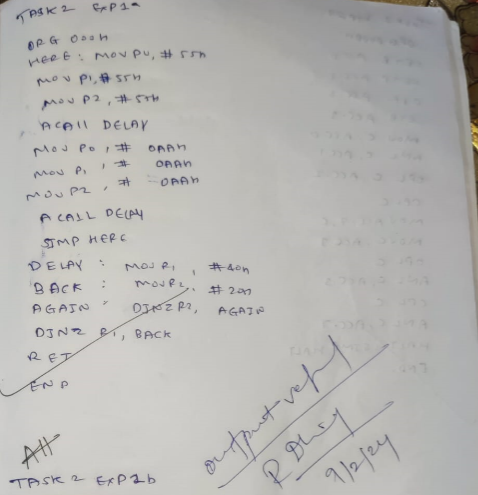 TASK 2 EXP1a
ORG 000H
HERE: MOV P0, # 55h
MOV P1, # 55h
MOV P2, # 55h
ACALL DELAY
MOV P0, # 0AAh
MOV P1, # 0AAh
MOV P2, # 0AAh
ACALL DELAY
SJMP HERE
DELAY : MOV R1, #40h
BACK : MOV R2, #20h
AGAIN : DJNZ R2, AGAIN
DJNZ R1, BACK
RET
END
output
9/2/24
TASK 2 EXP1b